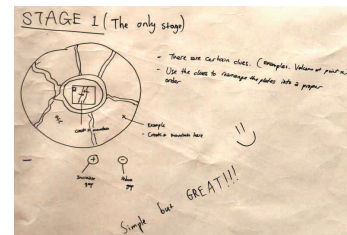 STAGE 1 (The only stage)
- There are certain clues. (examples. Volcano at point
- Use the clues to rearrange the plates into a proper
order
Create a mountain
Example
- Create a mountain here
+
-
guy
guy
Simple but GREAT!!!